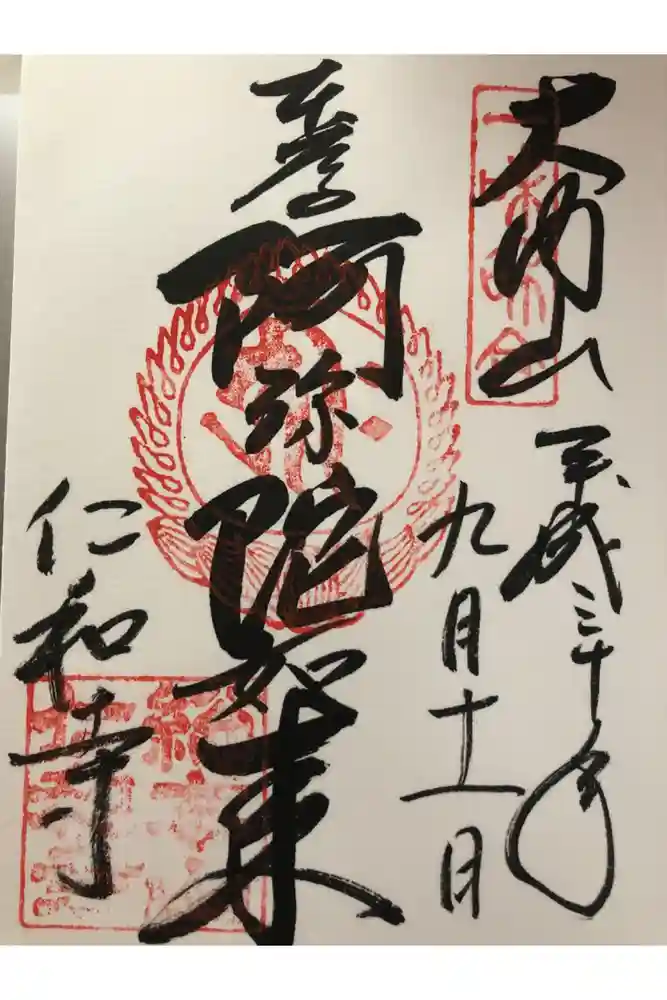 大内山
平成三十年
九月十一日
奉拝
阿弥陀如来
仁和寺